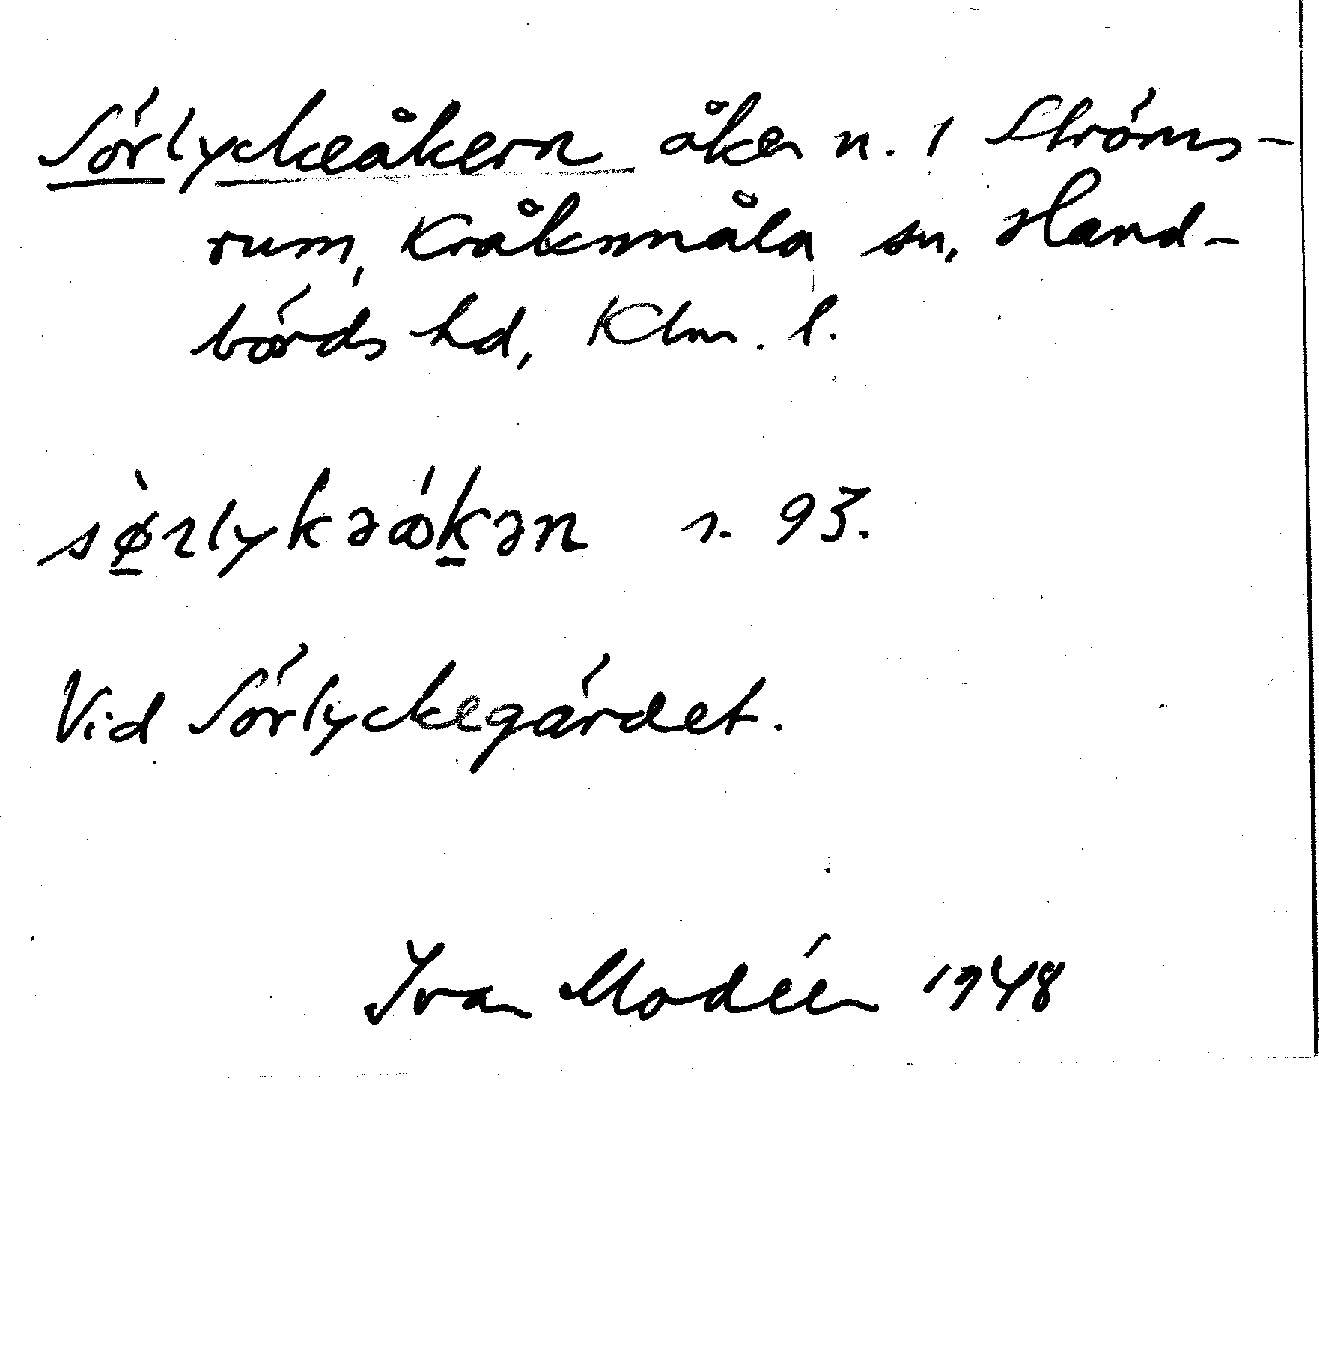 Sörlyckeåkern åker n. 1 Ströms-
rum, Kråksmåla sn, Hand-
börds hd, Klm. l.
sø̀rlykəǻkən s. 93.
Vid Sörlyckegärdet.
Ivar Modéer 1948